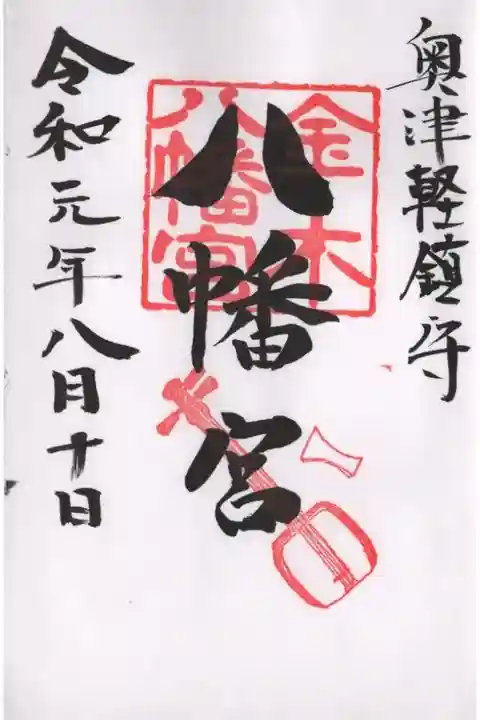 奥津軽鎮守
金木
八幡宮
八幡宮
令和元年八月十日